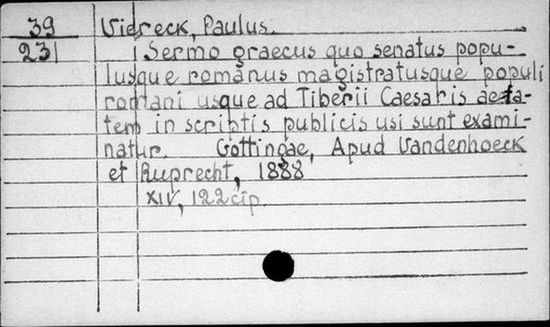 39 Viereck, Paulus.
231 Sermo graecus quo senatus popu-
lusque romanus magistratusque populi
romani usque ad Tiberii Caesaris aeta-
tem in scriptis publicis usi sunt exami-
natur. Gottingae, Apud Vandenhoeck
et Ruprecht, 1888
XIV, 122 стр.